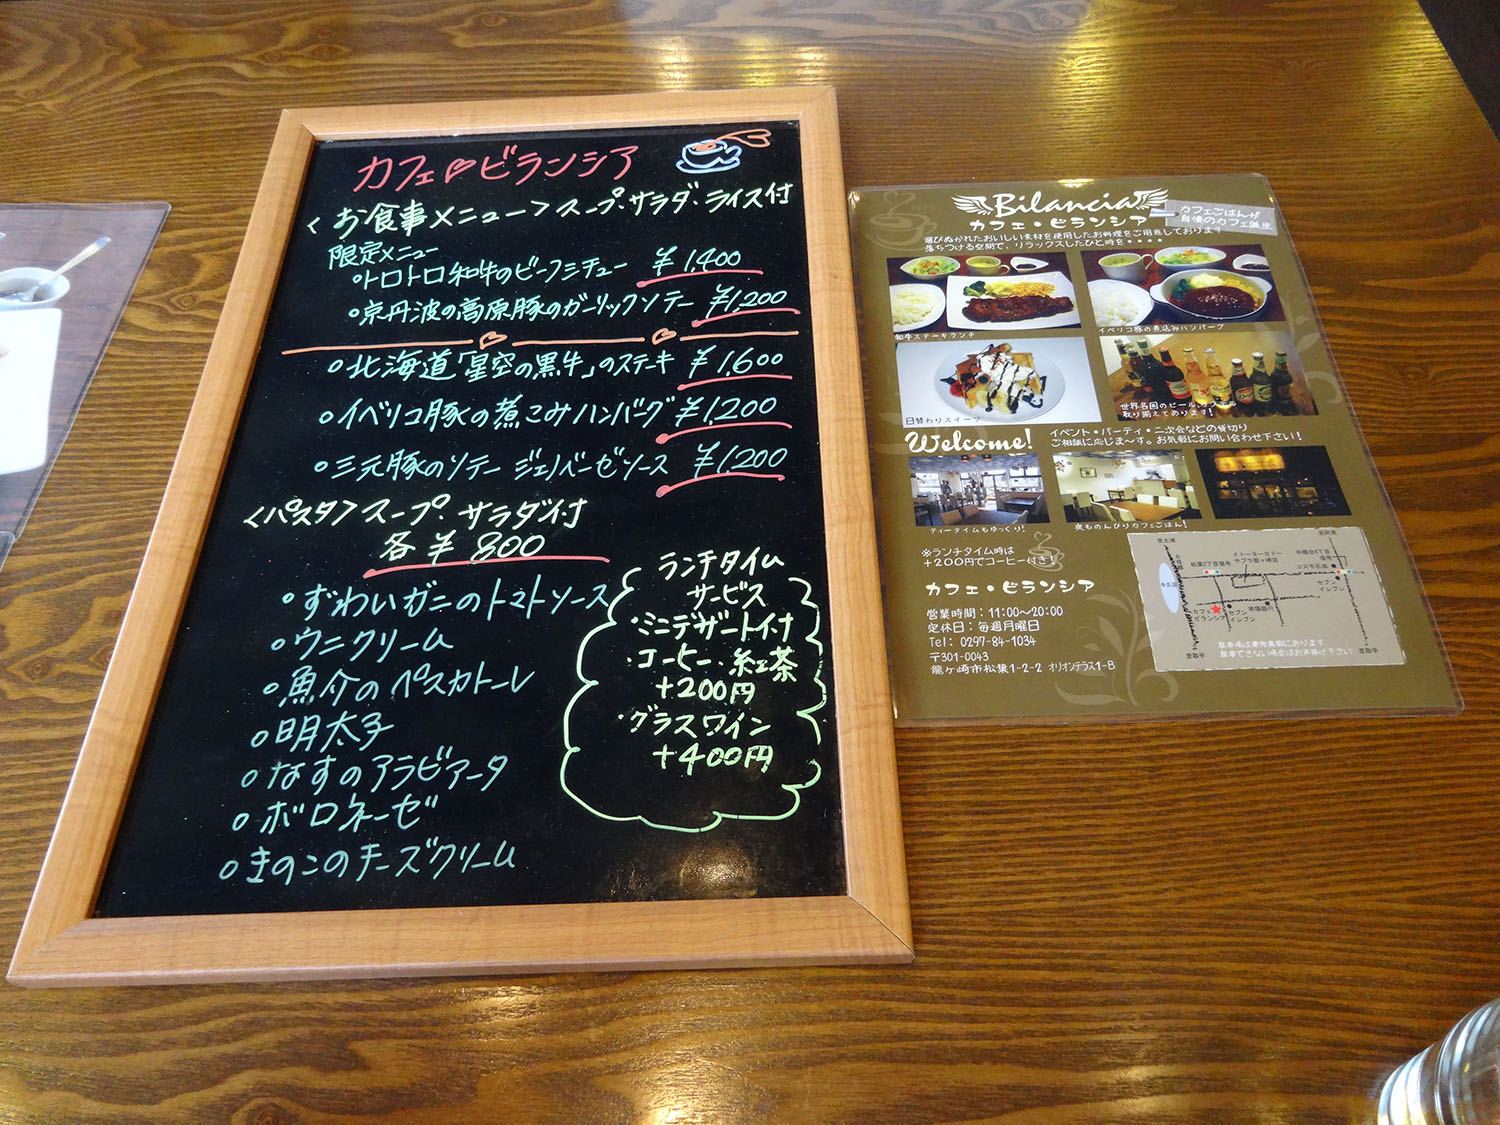 カフェ・ビランシア
<お食事メニュー>スープ・サラダ・ライス付
限定メニュー
・トロトロ和牛のビーフシチュー ¥1,400
・京丹波の高原豚のガーリックソテー ¥1,200
・北海道「星空の黒牛」のステキ ¥1,600
・イベリコ豚の煮こみハンバーグ ¥1,200
・三元豚のソテー ジェノベーゼソース ¥1,200
<パスタ>スープ・サラダ付
各 ¥800
・ずわいガニのトマトソース
・ウニクリーム
・魚介のペスカトーレ
・明太子
・なすのアラビアータ
・ボロネーゼ
・きのこのチーズクリーム
ランチタイム
サービス
・ミニデザート付
・コーヒー・紅茶
+200円
・グラスワイン
+400円
Bilancia
カフェ・ビランシア
カフェごはんが
自慢のカフェ誕生
選びぬかれたおいしい素材を使用したお料理をご用意しております
落ちつける空間で、リラックスしたひと時を・・・・
和牛ステーキランチ
イベリコ豚の煮込みハンバーグ
日替わりスイーツ
世界各国のビール
取り揃えてあります!
Welcome!
イベント・パーティ・二次会などの貸切り
ご相談に応じま〜す。お気軽にお問い合わせ下さい!
ティータイムもゆっくり!
夜ものんびりカフェごはん!
※ランチタイム時は
+200円でコーヒー付き!
カフェ・ビランシア
営業時間:11:00〜20:00
定休日:毎週月曜日
Tel: 0297-84-1034
〒301-0043
龍ヶ崎市松葉1-2-2 オリオンテラス1-B
至土浦
6号線
牛久沼
至取手
松葉2丁目信号
イトーヨーカドー
サプラ龍ヶ崎店
中根台4丁目
信号
コスモ石油
セブン
イレブン
カフェ
ビランシア
セブン
イレブン
常陽銀行
至取手